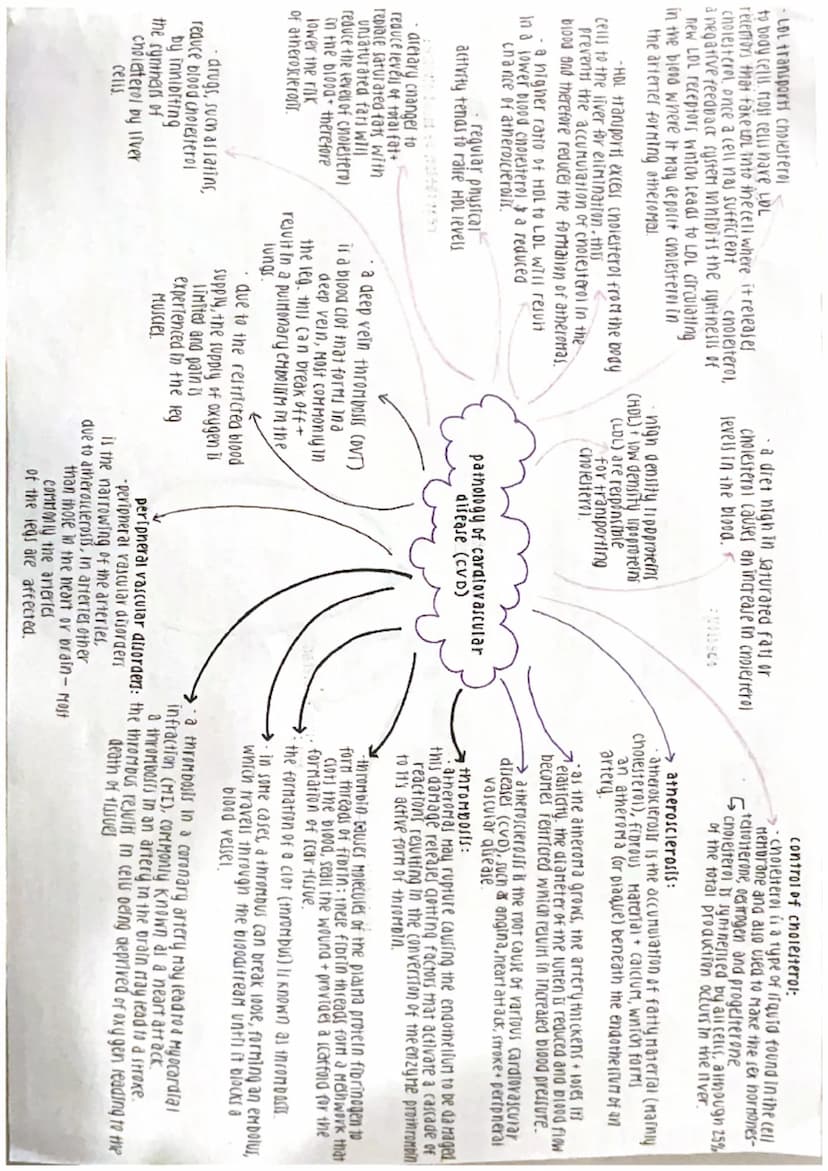 pathology of cardiovascular
disease (CVD)
atherosclerosis:
· atherosclerosis is the accumulation of fatty material (mainly
cholesterol), fibrous material + calcium, which forms
an atheroma (or plaque) beneath the endothelium of an
artery.
· as the atheroma grows, the artery thickens + loses its
elasticity, the diameter of the lumen is reduced and blood flow
becomes restricted which results in increased blood pressure.
· atherosclerosis is the root cause of various cardiovascular
diseases (CVD), such as angina, heart attack, stroke + peripheral
vascular disease.
thrombosis:
· atheromas may rupture causing the endothelium to be damaged
this damage releases clotting factors that activate a cascade of
reactions resulting in the conversion of the enzyme prothrombin
to it's active form of thrombin.
· thrombin causes molecules of the plasma protein fibrinogen to
form threads of fibrin; these fibrin threads form a meshwork that
clots the blood, seals the wound + provides a scaffold for the
formation of scar tissue.
· the formation of a clot (thrombus) is known as thrombosis.
· in some cases, a thrombus can break loose, forming an embolus,
which travels through the bloodstream until it blocks a
blood vessel.
· a thrombosis in a coronary artery may lead to a myocardial
infraction (MI), commonly known as a heart attack.
a thrombosis in an artery in the brain may lead to a stroke.
the thrombus results in cells being deprived of oxygen leading to the
death of tissues
peripheral vascular disorders:
· peripheral vascular disorders
is the narrowing of the arteries,
due to atherosclerosis, in arteries other
than those in the heart or brain - most
commonly the arteries
of the legs are affected.
· due to the restricted blood
supply, the supply of oxygen is
limited and pain is
experienced in the leg
muscles.
· a deep vein thrombosis (DVT)
is a blood clot that forms in a
deep vein, most commonly in
the leg. this can break off +
result in a pulmonary embolism in the
lung.
control of cholesterol:
· cholesterol is a type of liquid found in the cell
membrane and also used to make the sex hormones-
testosterone, oestrogen and progesterone
cholesterol is synthesised by all cells, although 25%
of the total production occurs in the liver.
· a diet high in saturated fats or
cholesterol causes an increase in cholesterol
levels in the blood.
· high density lipoproteins
(HDL) + low density lipoproteins
(LDL) are responsible
for transporting
cholesterol.
· LDL transports cholesterol
to body cells. most cells have LDL
receptors that take LDL into the cell where it releases
cholesterol. once a cell has sufficient cholesterol,
a negative feedback system inhibits the synthesis of
new LDL receptors which leads to LDL circulating
in the blood where it may deposit cholesterol in
the arteries forming atheromas.
· HDL transports excess cholesterol from the body
cells to the liver for elimination. this
prevents the accumulation of cholesterol in the
blood and therefore reduces the formation of atheromas.
· a higher ratio of HDL to LDL will result
in a lower blood cholesterol & a reduced
chance of atherosclerosis.
· regular physical
activity tends to raise HDL levels
· dietary changes to
reduce levels of total fat +
replace saturated fats with
unsaturated fats will
reduce the levels of cholesterol
in the blood + therefore
lower the risk
of atherosclerosis.
· drugs, such as statins,
reduce blood cholesterol
by inhibiting
the synthesis of
cholesterol by liver
cells.